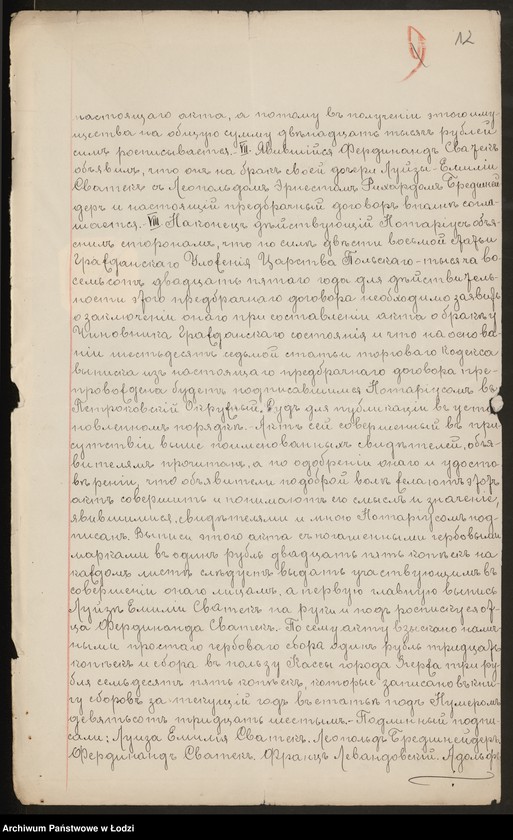 12
настоящаго акта, а потому въ полученіи этого иму-
щества на общую сумму двѣнадцать тысячъ рублей
симъ росписывается. VII. Явившійся Фердинандъ Сватекъ
объявилъ, что онъ на бракъ своей дочери Луизы-Емиліи
Сватекъ съ Леопольдомъ Эрнестомъ Рихардомъ Бредшней
деръ и настоящій предбрачный договоръ вполнѣ согла-
шается. VIII. Наконецъ дѣйствующій Нотаріусъ объя-
снилъ сторонамъ, что по силѣ двѣсти восьмой статьи
Гражданскаго Уложенія Царства Польскаго тысяча во-
семьсотъ двадцать пятаго года для дѣйствитель-
ности этого предбрачнаго договора необходимо заявить
о заключеніи онаго при составленіи акта о бракѣ у
Чиновника Гражданскаго состоянія и что на основа-
ніи шестьдесятъ седьмой статьи торговаго Кодекса
выписка изъ настоящаго предбрачнаго договора пре-
провождена будетъ подписавшимся Нотаріусомъ въ
Петроковскій Окружный Судъ для публикаціи въ уста-
новленномъ порядкѣ. Актъ сей совершенный въ при-
сутствіи выше поименованныхъ свидѣтелей, объя-
вителямъ прочитанъ, а по одобреніи онаго и удосто-
вѣреніи, что объявители по доброй волѣ желаютъ этотъ
актъ совершить и понимаютъ его смыслъ и значеніе,
явившимися, свидѣтелями и мною Нотаріусомъ под-
писанъ. Выписи этого акта съ погашенными гербовыми
марками въ одинъ рубль двадцать пять копѣекъ на
каждомъ листѣ слѣдуетъ выдать участвующимъ въ
совершеніи онаго лицамъ, а первую главную выпись
Луизѣ Емиліи Сватекъ на руки и подъ росписку ея от-
ца Фердинанда Сватекъ. По сему акту взыскано налич-
ными простаго гербоваго сбора одинъ рубль тридцать
копѣекъ и сбора въ пользу Кассы города Згержа три ру-
бля семьдесятъ пять копѣекъ, которые записано въ кни-
гу сборовъ за текущій годъ въ статьѣ подъ Нумеромъ
девятьсотъ тридцать шестымъ. Подлинный подпи-
сали: Луиза Емилія Сватекъ. Леопольдъ Бредшнейдеръ.
Фердинандъ Сватекъ. Францъ Левандовскій. Адольфъ
Archiwum Państwowe w Łodzi